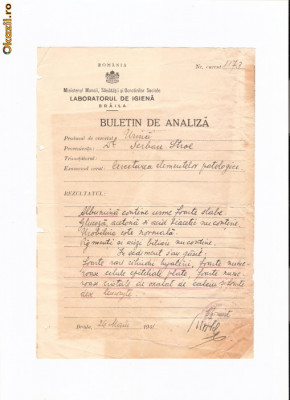 Okazii.ro
ROMÂNIA
Nr. curent 1128
Ministerul Muncii, Sănătății și Ocrotirilor Sociale
LABORATORUL DE IGIENĂ
BRĂILA
BULETIN DE ANALIZĂ
Produsul de cercetat Urină
Proveniența: Dl Serban Stroe
Trimițătorul:
Examenul cerut: Cercetarea elementelor patologice
REZULTATUL:
Albumină conține urme foarte slabe
Glucoză, acetonă și acid diacetic nu conține.
Urobilina este normală.
Pigmenți și acizi biliari nu conține.
In sediment s'au găsit:
Foarte rari cilindri hyalini, foarte nume-
roase celule epiteliale plate. Foarte nume-
roase cristale de oxalat de calciu și foarte
rare leucocite.
Brăila, 26 Martie 193